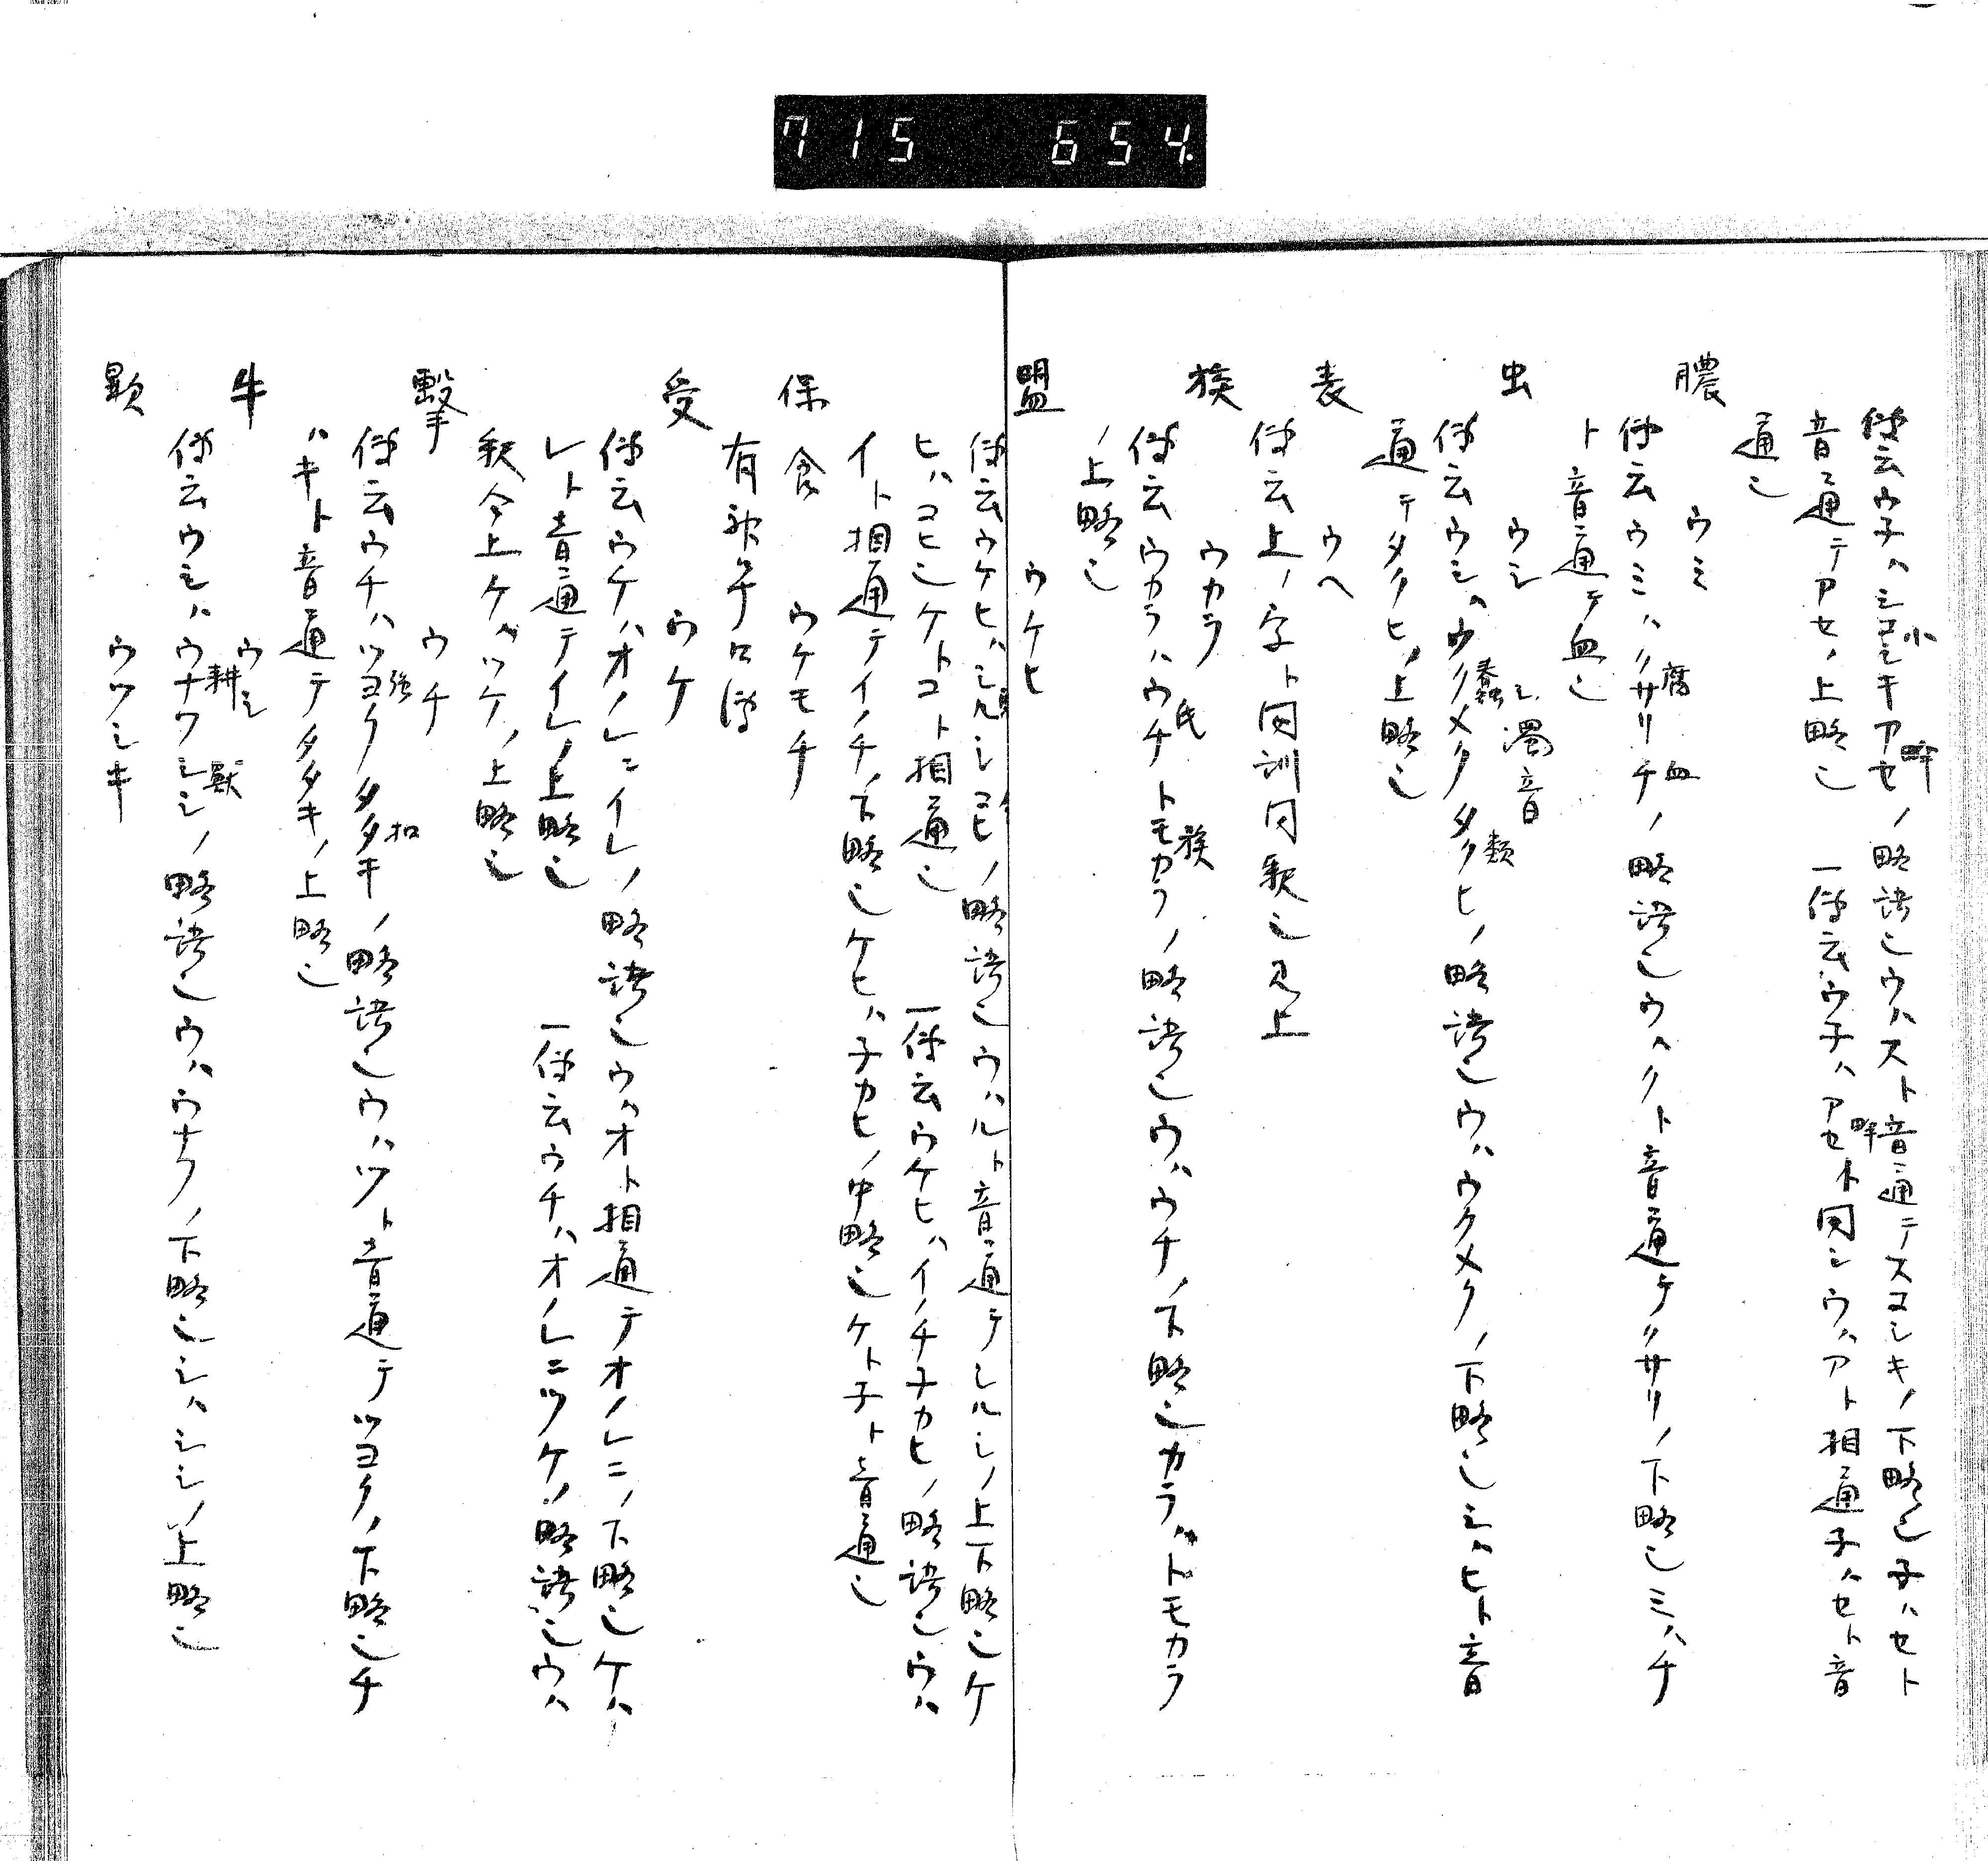 715 654
伝云ウ子ハシコシキアセノ略語也ウハスト音通テスコシキノ下略也子ハセト
小 畔
音通テアセノ上略也 一伝云ウ子ハアセト同シウハアト相通子ハセト音
畔
通也
膿 ウミ
伝云ウミハクサリチノ略語也ウハクト音通テクサリノ下略也ミハチ
腐 血
ト音通テ血也
虫 ウシ シ濁音
伝云ウシハウクメクタクヒノ略語也ウハウクメクノ下略也シハヒト音
蠢 類
通テタクヒノ上略也
表 ウヘ
伝云上ノ字ト同訓同釈也見上
族 ウカラ
伝云ウカラハウチトモカラノ略語也ウハウチノ下略也カラハトモカラ
氏 族
ノ上略也
盟 ウケヒ
伝云ウケヒハシルシコヒノ略語也ウハルト音通テシルシノ上下略也ケ
ヒハコヒ也ケトコト相通也 一伝云ウケヒハイノチ子カヒノ略語也ウハ
イト相通テイノチノ下略也ケヒハ子カヒノ中略也ケト子ト音通也
保食 ウケモチ
有神号口伝
受 ウケ
伝云ウケハオノレニイレノ略語也ウハオト相通テオノレニノ下略也ケハ
レト音通テイレノ上略也 一伝云ウチハオノレニツケノ略語也ウハ
釈今上ケハツケノ上略也
撃 ウチ
伝云ウチハツヨクタタキノ略語也ウハツト音通テツヨクノ下略也チ
強 扣
ハキト音通テタタキノ上略也
牛 ウシ
伝云ウシハウナフシシノ略語也ウハウナフノ下略也シハシシノ上略也
耕 獣
ウツシキ